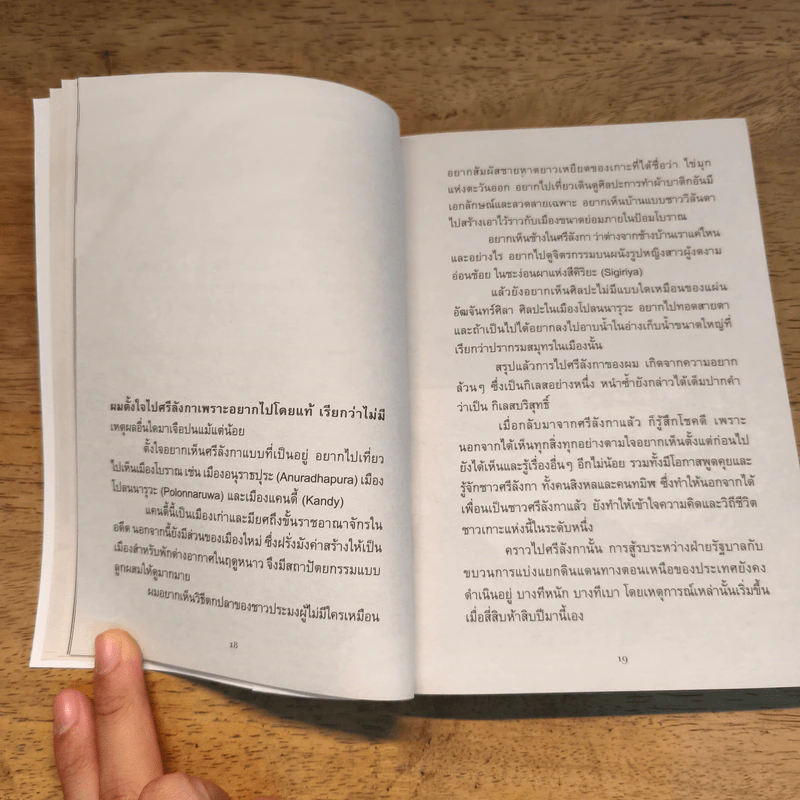 ผมตั้งใจไปศรีลังกาเพราะอยากไปโดยแท้ เรียกว่าไม่มี
เหตุผลอื่นใดมาเจือปนแม้แต่น้อย
ตั้งใจอยากเห็นศรีลังกาแบบที่เป็นอยู่ อยากไปเที่ยว
ไปเห็นเมืองโบราณ เช่น เมืองอนุราธปุระ (Anuradhapura) เมือง
โปลนนารุวะ (Polonnaruwa) และเมืองแคนดี้ (Kandy)
แคนดี้นี้เป็นเมืองเก่าและมียศถึงขั้นราชอาณาจักรใน
อดีต นอกจากนี้ยังมีส่วนของเมืองใหม่ ซึ่งฝรั่งมังค่าสร้างให้เป็น
เมืองสำหรับพักต่างอากาศในฤดูหนาว จึงมีสถาปัตยกรรมแบบ
ลูกผสมให้ดูมากมาย
ผมอยากเห็นวิธีตกปลาของชาวประมงผู้ไม่มีใครเหมือน
18
อยากสัมผัสชายหาดยาวเหยียดของเกาะที่ได้ชื่อว่า ไข่มุก
แห่งตะวันออก อยากไปเที่ยวเดินดูศิลปะการทำผ้าบาติกอันมี
เอกลักษณ์และลวดลายเฉพาะ อยากเห็นบ้านแบบชาววิลันดา
ไปสร้างเอาไว้ราวกับเมืองขนาดย่อมภายในป้อมโบราณ
อยากเห็นช้างในศรีลังกา ว่าต่างจากช้างบ้านเราแค่ไหน
และอย่างไร อยากไปดูจิตรกรรมบนผนังรูปหญิงสาวผู้งดงาม
อ่อนช้อย ในชะง่อนผาแห่งสีคิริยะ (Sigiriya)
แล้วยังอยากเห็นศิลปะไม่มีแบบใดเหมือนของแผ่น
อัฒจันทร์ศิลา ศิลปะในเมืองโปลนนารุวะ อยากไปทอดสายตา
และถ้าเป็นไปได้อยากลงไปอาบน้ำในอ่างเก็บน้ำขนาดใหญ่ที่
เรียกว่าปรากรมสมุทรในเมืองนั้น
สรุปแล้วการไปศรีลังกาของผม เกิดจากความอยาก
ล้วนๆ ซึ่งเป็นกิเลสอย่างหนึ่ง หนำซ้ำยังกล่าวได้เต็มปากคำ
ว่าเป็น กิเลสบริสุทธิ์
เมื่อกลับมาจากศรีลังกาแล้ว ก็รู้สึกโชคดี เพราะ
นอกจากได้เห็นทุกสิ่งทุกอย่างตามใจอยากเห็นตั้งแต่ก่อนไป
ยังได้เห็นและรู้เรื่องอื่นๆ อีกไม่น้อย รวมทั้งมีโอกาสพูดคุยและ
รู้จักชาวศรีลังกา ทั้งคนสิงหลและคนทมิฬ ซึ่งทำให้นอกจากได้
เพื่อนเป็นชาวศรีลังกาแล้ว ยังทำให้เข้าใจความคิดและวิถีชีวิต
ชาวเกาะแห่งนี้ในระดับหนึ่ง
คราวไปศรีลังกานั้น การสู้รบระหว่างฝ่ายรัฐบาลกับ
ขบวนการแบ่งแยกดินแดนทางตอนเหนือของประเทศยังคง
ดำเนินอยู่ บางทีหนัก บางทีเบา โดยเหตุการณ์เหล่านั้นเริ่มขึ้น
เมื่อสี่สิบห้าสิบปีมานี้เอง
19